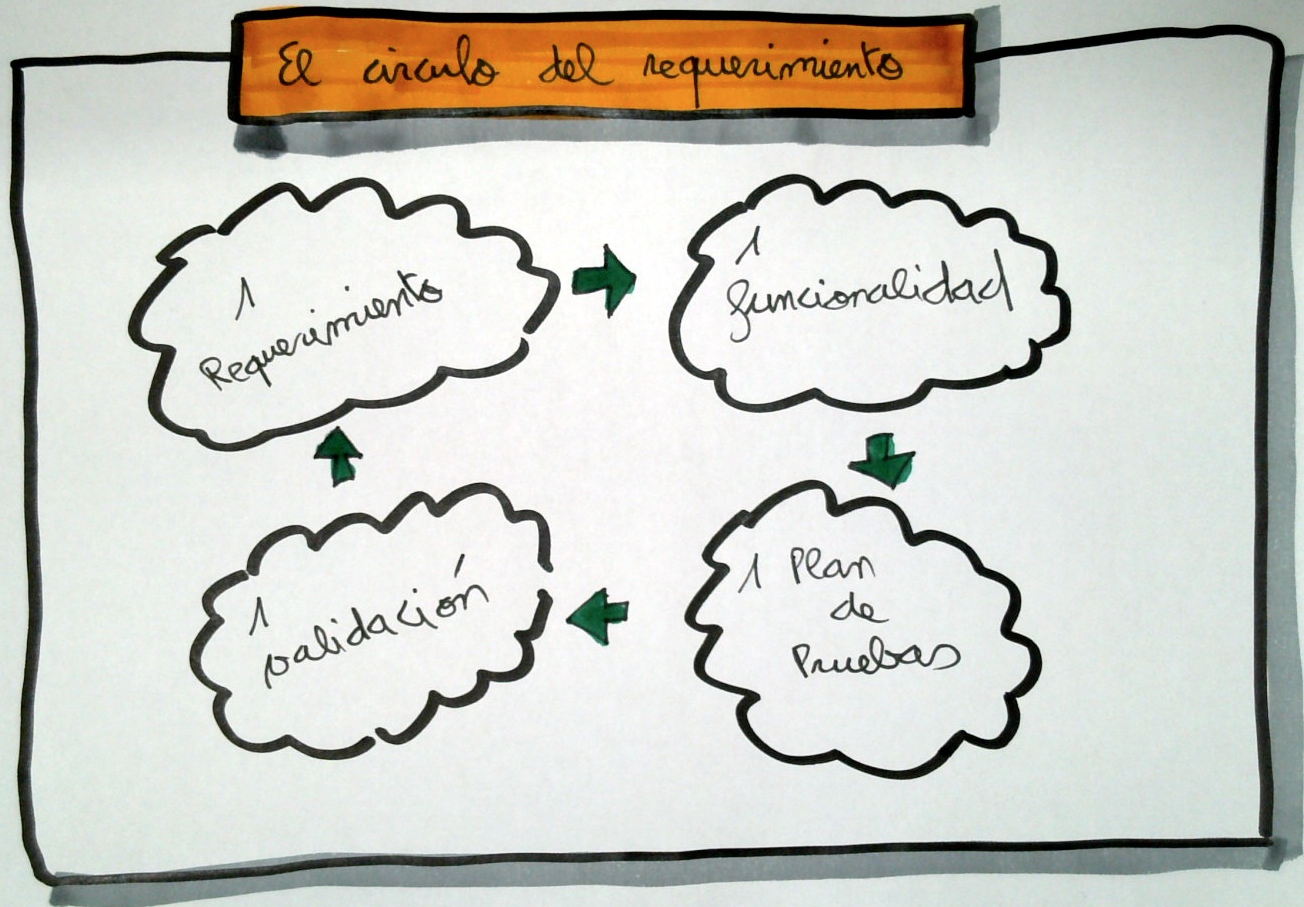 El circulo del requerimiento
1
Requerimiento
1
funcionalidad
1 Plan
de
Pruebas
1
validación